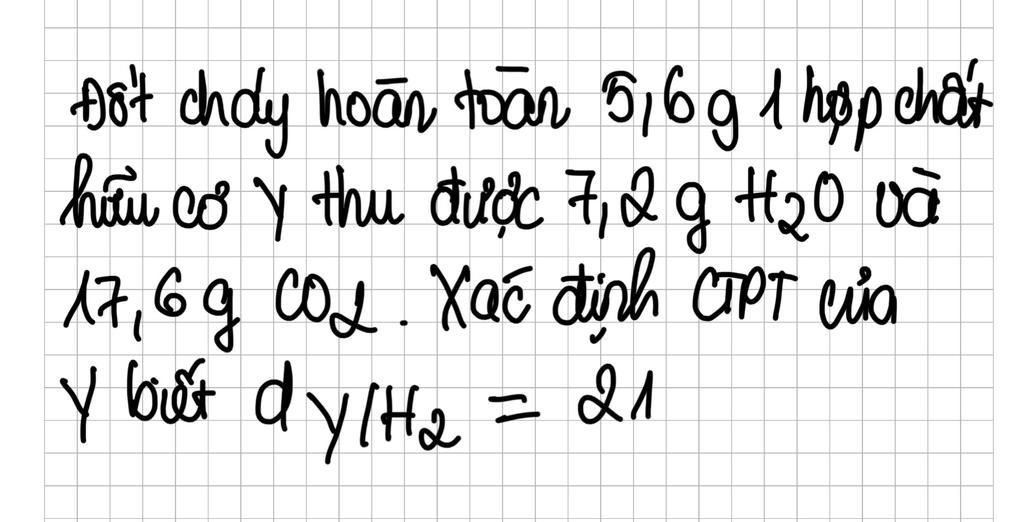 Đốt cháy hoàn toàn 5,6 g 1 hợp chất
hữu cơ Y thu được 7,2 g H₂O và
17,6 g CO₂. Xác định CTPT của
Y biết d Y/H₂ = 21